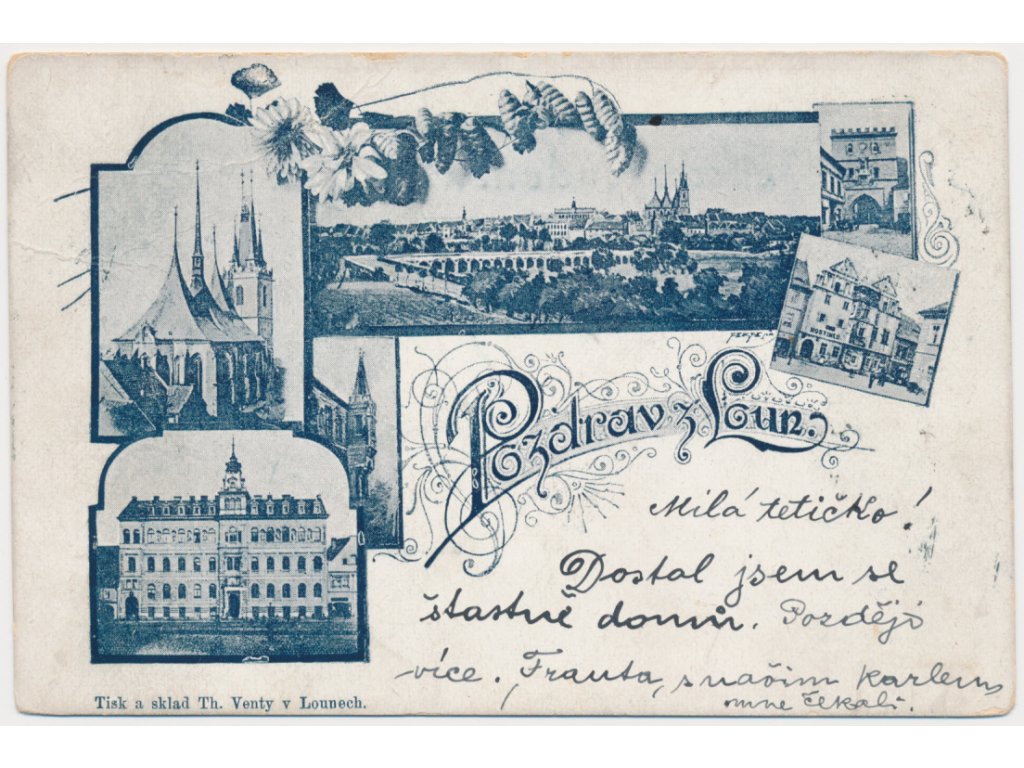 HOSTINEC
Pozdrav z Lun.
Milá tetičko!
Dostal jsem se
šťastně domů. Později
více. Frauta, s načim Karlem
mne čekali.
Tisk a sklad Th. Venty v Lounech.